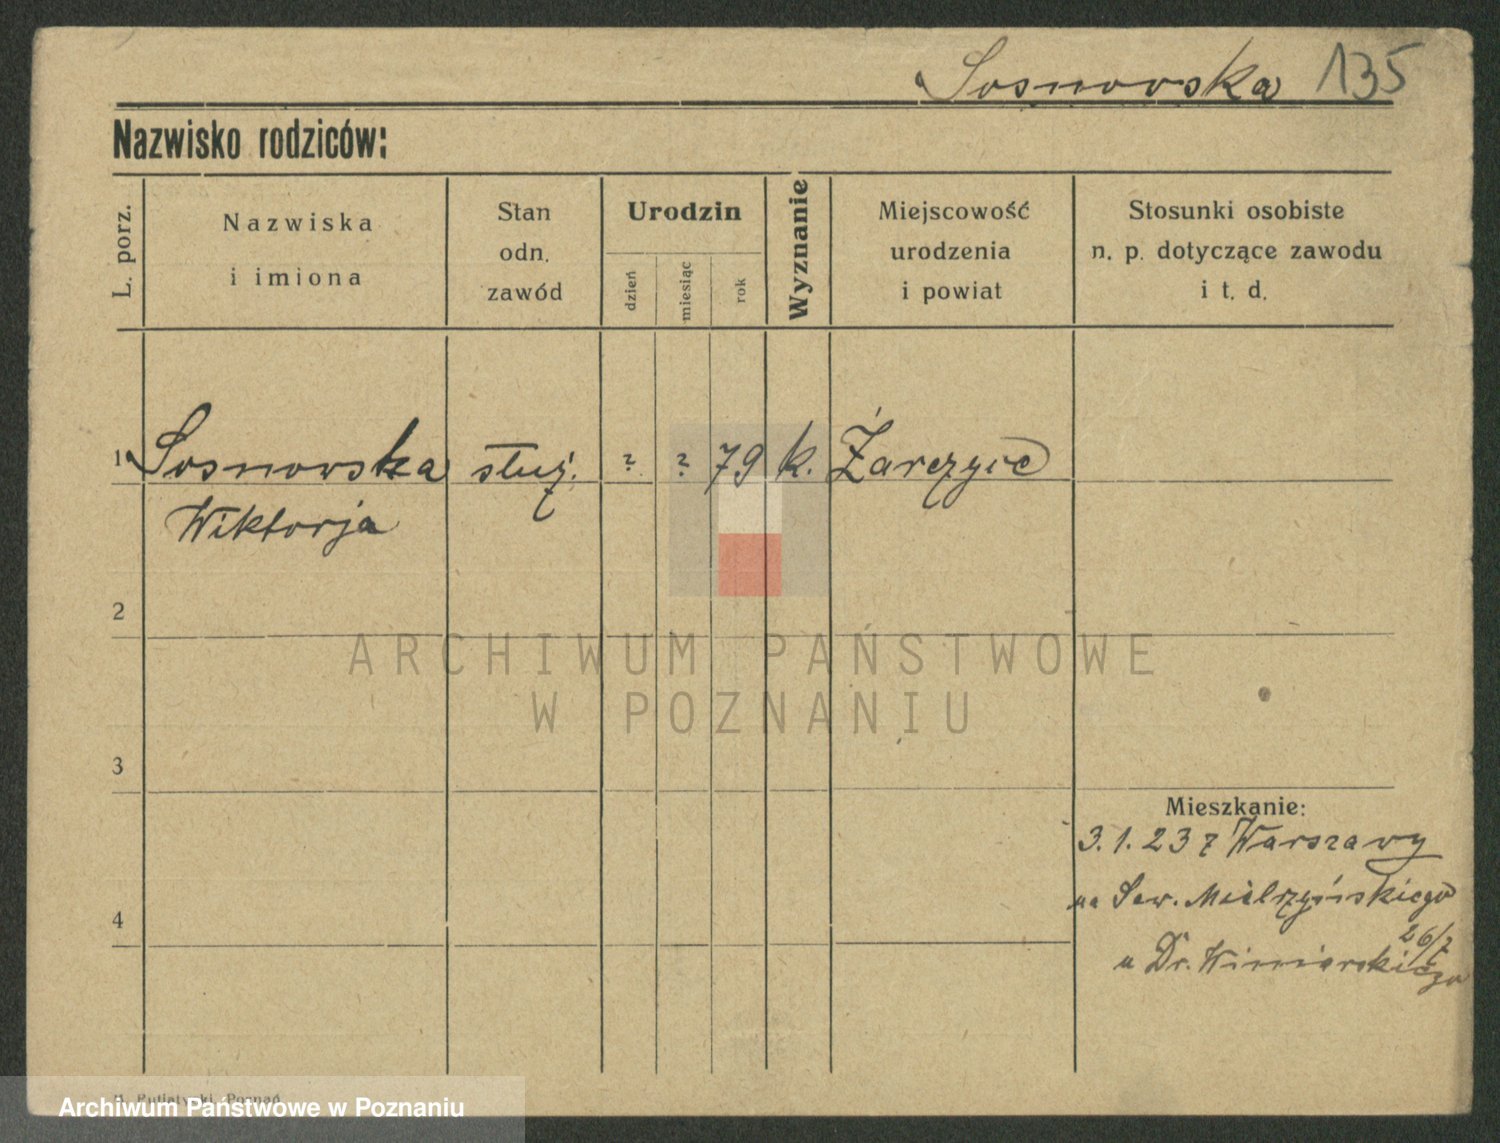 Sosnowska 135
Nazwisko rodziców:
L. porz.
Nazwiska
i imiona
Stan
odn.
zawód
Urodzin
dzień
miesiąc
rok
Wyznanie
Miejscowość
urodzenia
i powiat
Stosunki osobiste
n. p. dotyczące zawodu
i t. d.
1 Sosnowska służ. ? ? 79 k. Żarczyce
Wiktorja
2
ARCHIWUM PAŃSTWOWE
W POZNANIU
3
Mieszkanie:
3. 1. 23 z Warszawy
na Sew. Mielżyńskiego
26/7
u Dr. Winiarskiego
4
Poznań
Archiwum Państwowe w Poznaniu